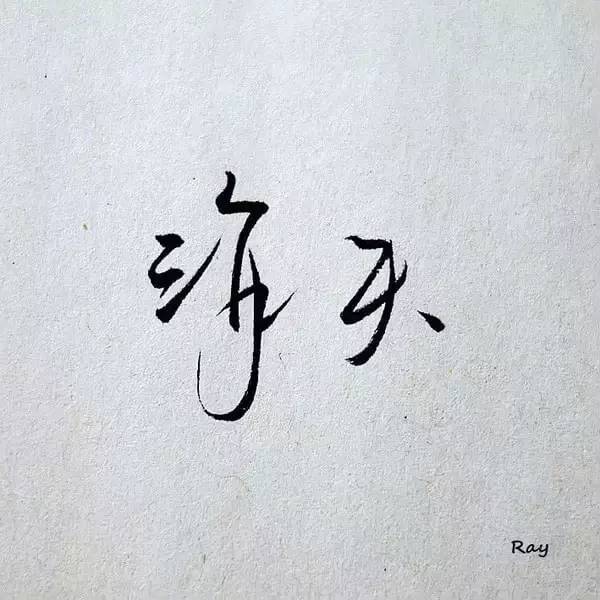 海天
Ray